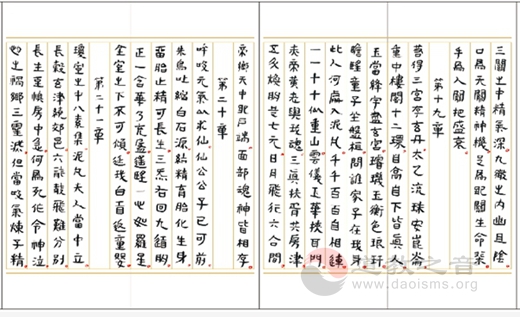 三關之中精氣深九微之內幽且陰
口為天關精神機足為地關生命棐
手為人關把盛衰
第十九章
若得三宮存玄丹太乙流珠安崑崙
重中樓閣十二環自高自下皆真人
玉堂絳宇盡玄宮璿璣玉衡色琅玕
瞻望童子坐盤桓問誰家子在我身
此人何處入泥丸千千百百自相連
一一十十似重山雲儀玉華俠耳門
赤帝黃老與我魂三真扶胥共房津
五斗煥明是七元日月飛行六合間
帝鄉天中地戶端面部魂神皆相存
第二十章
呼吸元氣以求仙仙公公子已可前
朱鳥吐縮白石源結精育胎化生身
留胎止精可長生三炁右回九道明
正一含華乃充盈遙望一心如羅星
金室之下不可傾延我白首返童嬰
第二十一章
瓊室之中八素集泥丸夫人當中立
長穀玄津繞郊邑六龍散飛難分別
長生至慎房中急何為死作令神泣
忽之禍鄉三靈滅但當吸氣煉子精
道教之音
www.daoisms.org